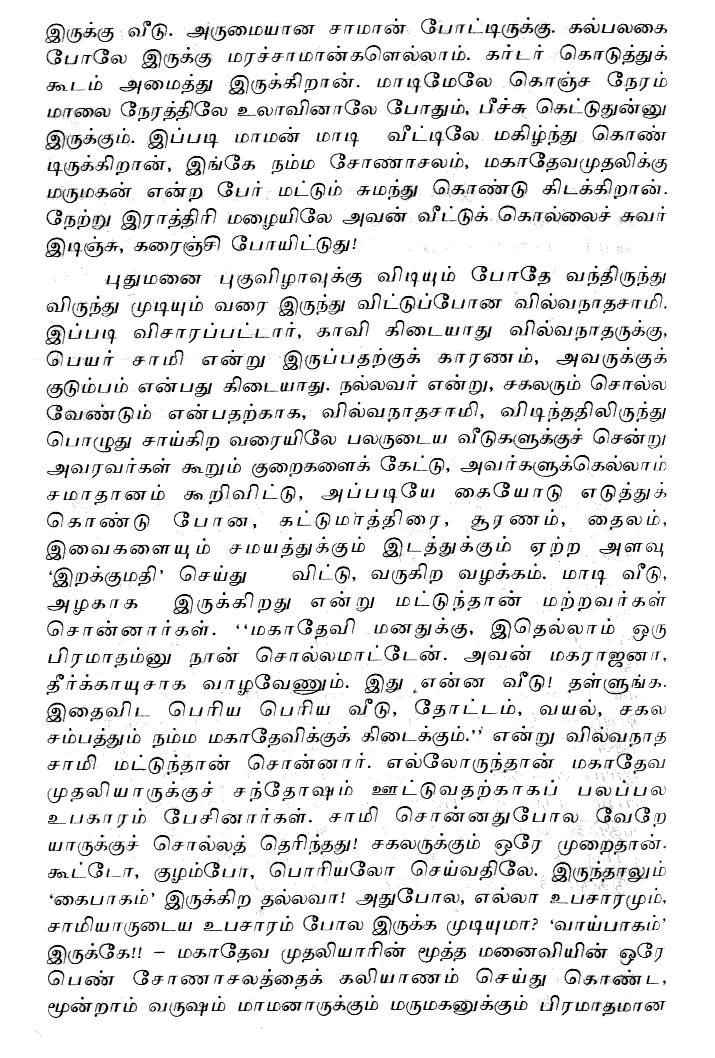 இருக்கு வீடு. அருமையான சாமான் போட்டிருக்கு. கல்பலகை
போலே இருக்கு மரச்சாமான்களெல்லாம். கர்டர் கொடுத்துக்
கூடம் அமைத்து இருக்கிறான். மாடிமேலே கொஞ்ச நேரம்
மாலை நேரத்திலே உலாவினாலே போதும், பீச்சு கெட்டுதுன்னு
இருக்கும். இப்படி மாமன் மாடி வீட்டிலே மகிழ்ந்து கொண்
டிருக்கிறான், இங்கே நம்ம சோணாசலம், மகாதேவமுதலிக்கு
மருமகன் என்ற பேர் மட்டும் சுமந்து கொண்டு கிடக்கிறான்.
நேற்று இராத்திரி மழையிலே அவன் வீட்டுக் கொல்லைச் சுவர்
இடிஞ்சு, கரைஞ்சி போயிட்டுது!
புதுமனை புகுவிழாவுக்கு விடியும் போதே வந்திருந்து
விருந்து முடியும் வரை இருந்து விட்டுப்போன வில்வநாதசாமி.
இப்படி விசாரப்பட்டார், காவி கிடையாது வில்வநாதருக்கு,
பெயர் சாமி என்று இருப்பதற்குக் காரணம், அவருக்குக்
குடும்பம் என்பது கிடையாது. நல்லவர் என்று, சகலரும் சொல்ல
வேண்டும் என்பதற்காக, வில்வநாதசாமி, விடிந்ததிலிருந்து
பொழுது சாய்கிற வரையிலே பலருடைய வீடுகளுக்குச் சென்று
அவரவர்கள் கூறும் குறைகளைக் கேட்டு, அவர்களுக்கெல்லாம்
சமாதானம் கூறிவிட்டு, அப்படியே கையோடு எடுத்துக்
கொண்டு போன, கட்டுமாத்திரை, சூரணம், தைலம்,
இவைகளையும் சமயத்துக்கும் இடத்துக்கும் ஏற்ற அளவு
‘இறக்குமதி’ செய்து விட்டு, வருகிற வழக்கம். மாடி வீடு,
அழகாக இருக்கிறது என்று மட்டுந்தான் மற்றவர்கள்
சொன்னார்கள். ‘‘மகாதேவி மனதுக்கு, இதெல்லாம் ஒரு
பிரமாதம்னு நான் சொல்லமாட்டேன். அவன் மகராஜனா,
தீர்க்காயுசாக வாழவேணும். இது என்ன வீடு! தள்ளுங்க.
இதைவிட பெரிய பெரிய வீடு, தோட்டம், வயல், சகல
சம்பத்தும் நம்ம மகாதேவிக்குக் கிடைக்கும்.’’ என்று வில்வநாத
சாமி மட்டுந்தான் சொன்னார். எல்லோருந்தான் மகாதேவ
முதலியாருக்குச் சந்தோஷம் ஊட்டுவதற்காகப் பலப்பல
உபகாரம் பேசினார்கள். சாமி சொன்னதுபோல வேறே
யாருக்குச் சொல்லத் தெரிந்தது! சகலருக்கும் ஒரே முறைதான்.
கூட்டோ, குழம்போ, பொரியலோ செய்வதிலே. இருந்தாலும்
‘கைபாகம்’ இருக்கிற தல்லவா! அதுபோல, எல்லா உபசாரமும்,
சாமியாருடைய உபசாரம் போல இருக்க முடியுமா? ‘வாய்பாகம்’
இருக்கே!! – மகாதேவ முதலியாரின் மூத்த மனைவியின் ஒரே
பெண் சோணாசலத்தைக் கலியாணம் செய்து கொண்ட,
மூன்றாம் வருஷம் மாமனாருக்கும் மருமகனுக்கும் பிரமாதமான